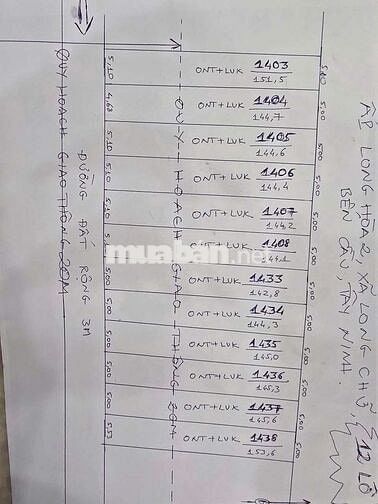 ONT+LUK 1403
151,5
ONT+LUK 1404
144,7
ONT+LUK 1405
144,6
ONT+LUK 1406
144,4
ONT+LUK 1407
144,2
ONT+LUK 1408
144,1
ONT+LUK 1433
142,8
ONT+LUK 1434
144,3
ONT+LUK 1435
145,0
ONT+LUK 1436
145,3
ONT+LUK 1437
145,6
ONT+LUK 1438
153,6
5,10
4,63
5,10
5,10
5,10
5,00
5,00
5,00
5,00
5,00
5,53
5,00
5,00
5,00
5,00
5,00
5,00
5,00
5,00
5,00
5,00
QUY HOẠCH GIAO THÔNG 20M
ĐƯỜNG ĐẤT RỘNG 3M
QUY HOẠCH GIAO THÔNG 20M
ẤP LONG HÒA 2, XÃ LONG CHỮ,
BẾN CẦU TÂY NINH.
12 LÔ
muaban.net